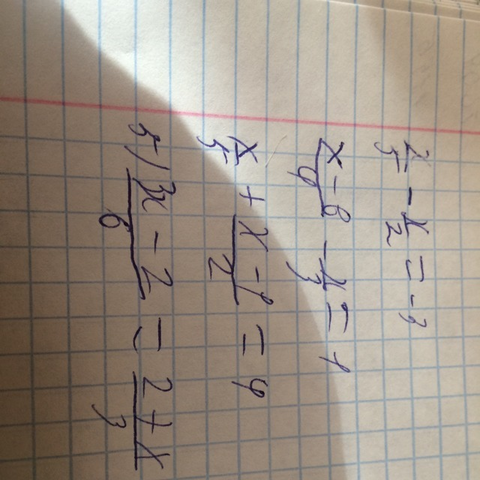 x/5 - x/2 = -3
(x - 6)/4 - x/3 = 1
x/5 + (x - 1)/2 = 4
5) (3x - 2)/6 = (2 + x)/3